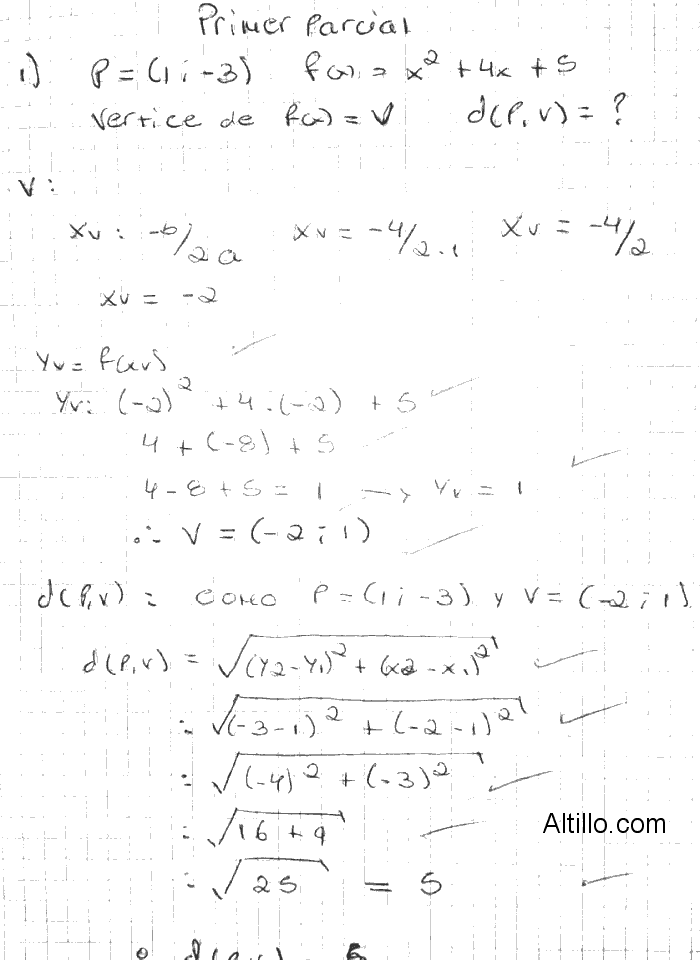 Primer Parcial
1) P = (1 ; -3) f(x) = x² + 4x + 5
Vertice de f(x) = V d(P, V) = ?
V :
Xv : -b/2a Xv = -4/2.1 Xv = -4/2
Xv = -2
Yv = f(xv)
Yv: (-2)² + 4 . (-2) + 5
4 + (-8) + 5
4 - 8 + 5 = 1 → Yv = 1
∴ V = (-2 ; 1)
d(P,V) = como P = (1 ; -3) y V = (-2 ; 1)
d(P, V) = √((Y2 - Y1)² + (x2 - x1)²)
= √((-3 - 1)² + (-2 - 1)²)
= √((-4)² + (-3)²)
= √(16 + 9)
= √25 = 5
Altillo.com